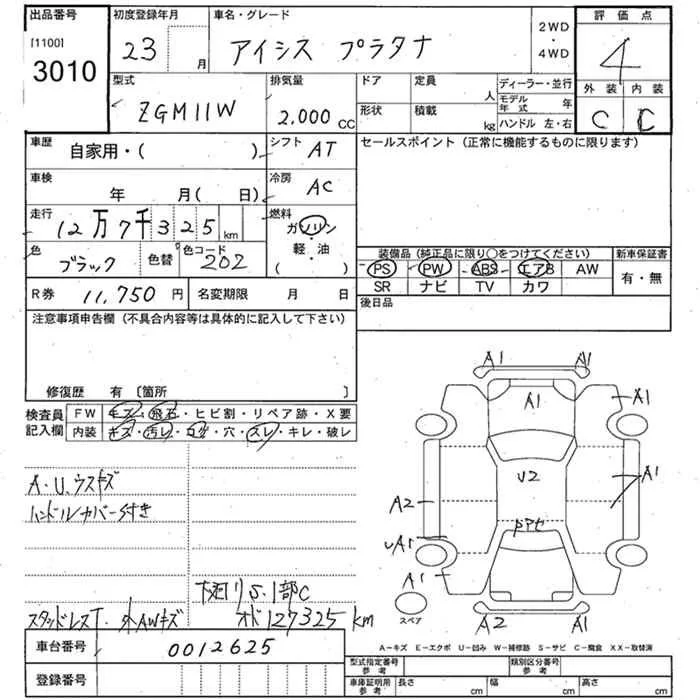 出品番号
[1100]
3010
初度登録年月
23 月
車名・グレード
アイシス プラタナ
2WD
・
4WD
評価点
4
外装 内装
C C
型式
ZGM11W
排気量
2.000 CC
ドア
定員
人
形状
積載
kg
ディーラー・並行
モデル年式 年
ハンドル 左・右
車歴
自家用・( )
シフト
AT
セールスポイント (正常に機能するものに限ります)
車検
年 月( 日)
冷房
AC
走行
12万7千325km
燃料
ガソリン
・
軽・油
( )
色
ブラック
色替
色コード
202
装備品 (純正品に限り○をつけてください)
新車保証書
PS PW ABS エアB AW
SR ナビ TV カワ
有・無
R券 11,750 円
名変期限 月 日
後日品
注意事項申告欄 (不具合内容等は具体的に記入して下さい)
修復歴 有 〔箇所 〕
検査員記入欄
FW キズ・飛石・ヒビ割・リペア跡・X要
内装 キズ・汚レ・コゲ・穴・スレ・キレ・破レ
A・U.ウスキズ
ハンドルカバー付き
下回りS.1部C
スタッドレスT.外AWキズ
オド127325km
A1 A1
A1 A1
A1
U2
A2
UA1
A1
A2 A1
スペア
A－キズ E－エクボ U－凹み W－補修跡 S－サビ C－腐食 XX－取替済
車台番号 0012625
登録番号
型式指定番号 参考
類別区分番号 参考
車庫証明用 参考
長さ cm
幅 cm
高さ cm